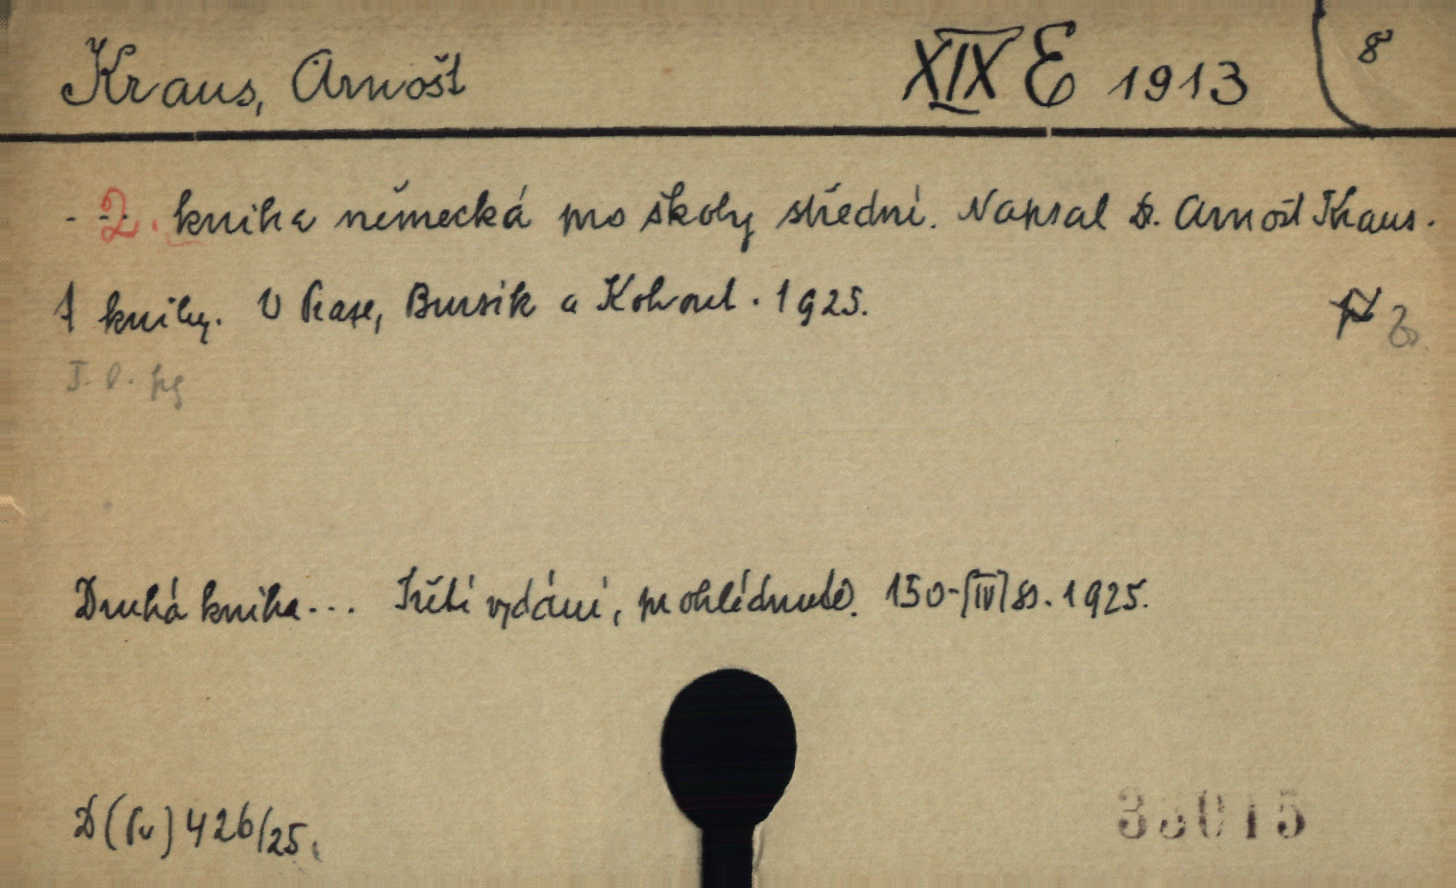 Kraus, Arnošt XIX E 1913 8
- 2. kniha německá pro školy střední. Napsal Dr. Arnošt Kraus.
knihy. V Praze, Bursík a Kohout. 1925.
Druhá kniha... Třetí vydání, prohlédnuté. 150-[IV] s. 1925.
D (Pv) 426/25.
33015